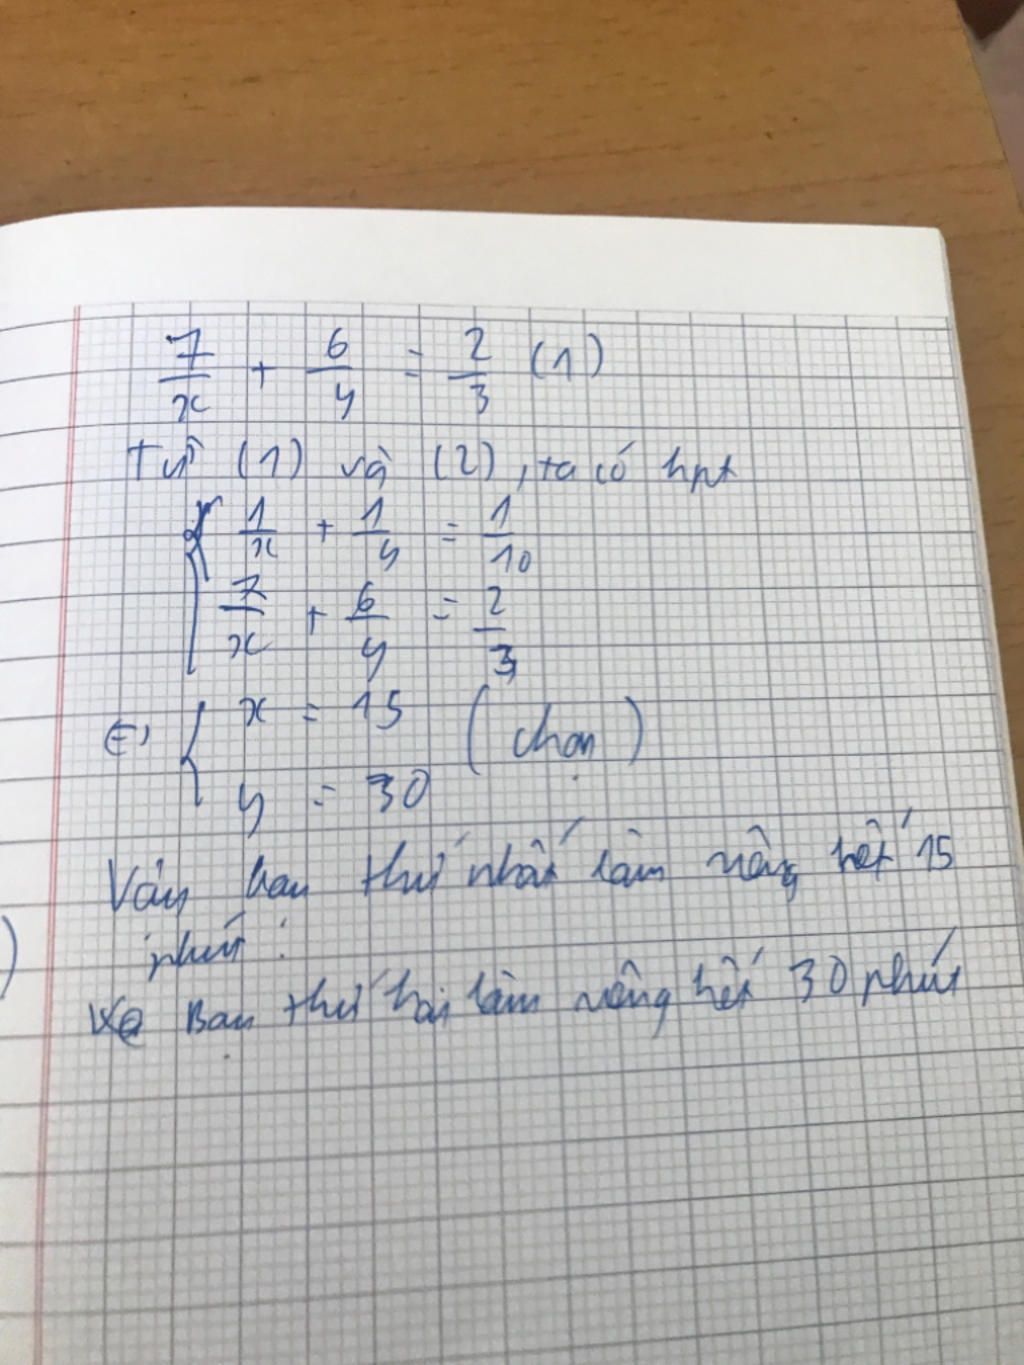 7/x + 6/y = 2/3 (1)
Từ (1) và (2), ta có hpt
{ 1/x + 1/y = 1/10
7/x + 6/y = 2/3
⇔ { x = 15 (chọn)
y = 30
Vậy bạn thứ nhất làm riêng hết 15
phút.
Bạn thứ hai làm riêng hết 30 phút